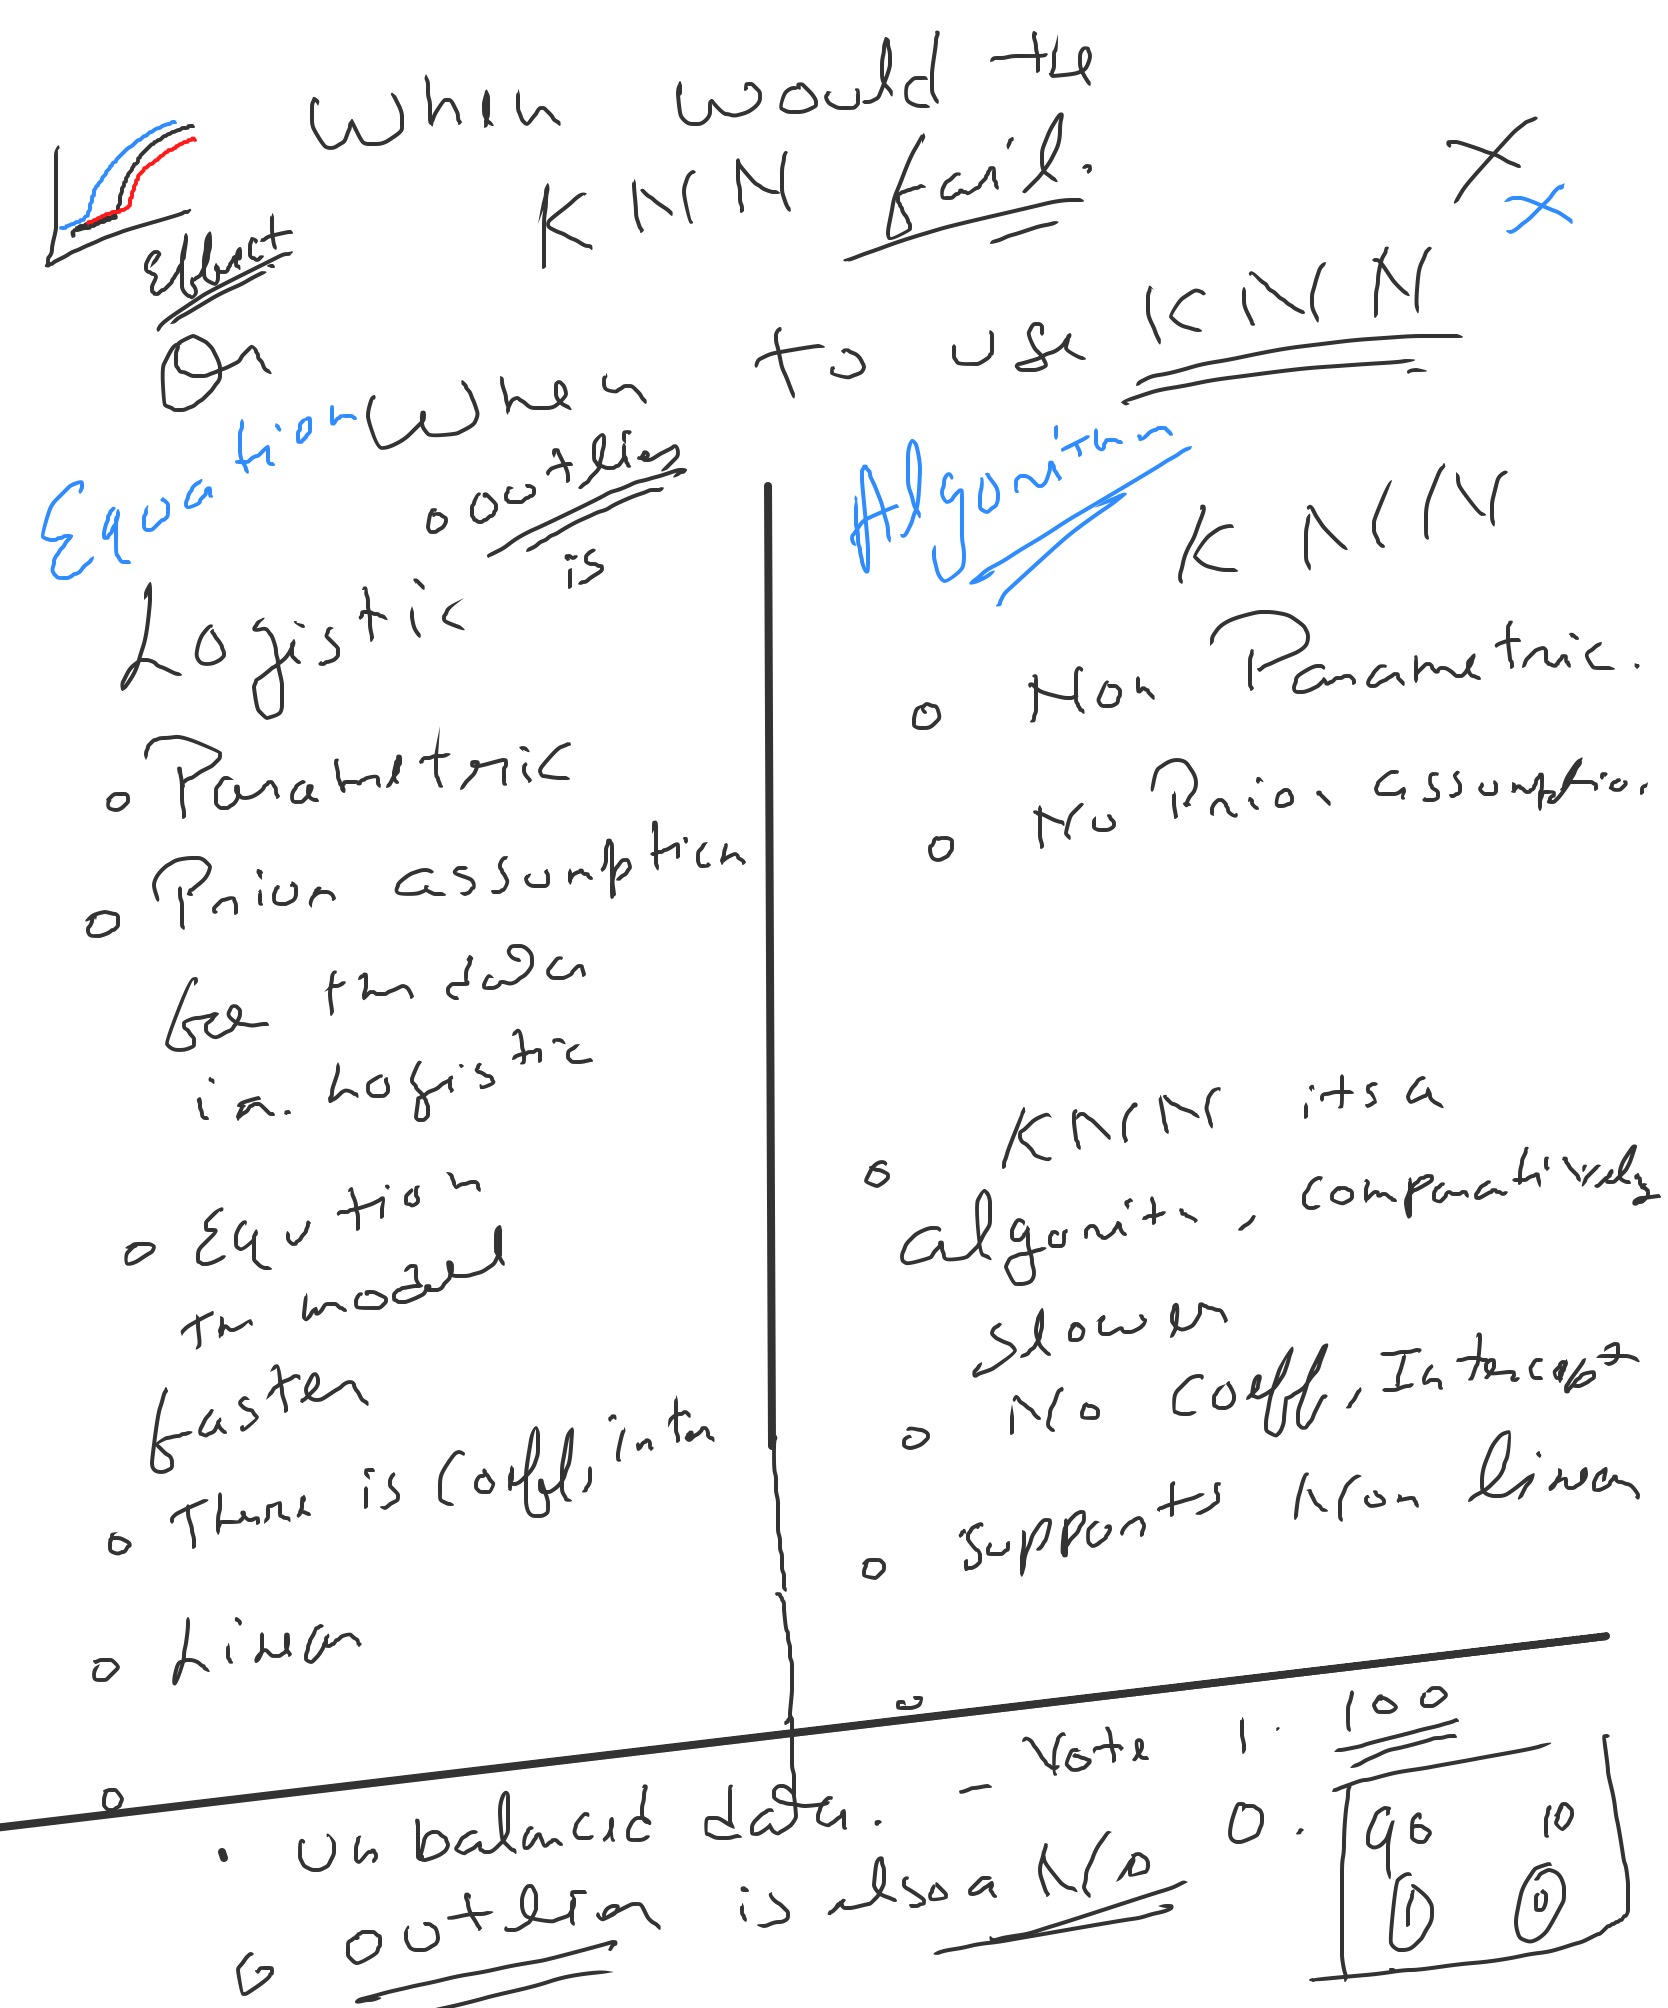 When would the
KNN fail.
Effect
Or
When to use KNN
Equation
o outlier
is
Logistic
o Parametric
o Prior assumption
for the data
in. Logistic
o Eqution
Th model
faster
o There is Coeff, inter
o Linear
o
Algorithm
KNN
o Non Parametric.
o No Prior assumption
o KNN its a
algorith, comparatively
slower
o No Coeff, Intercept
o Supports Non linear
o
. Un balanced data. - Vote 1. 100
0.
90 10
1 0
o outlier is also a No